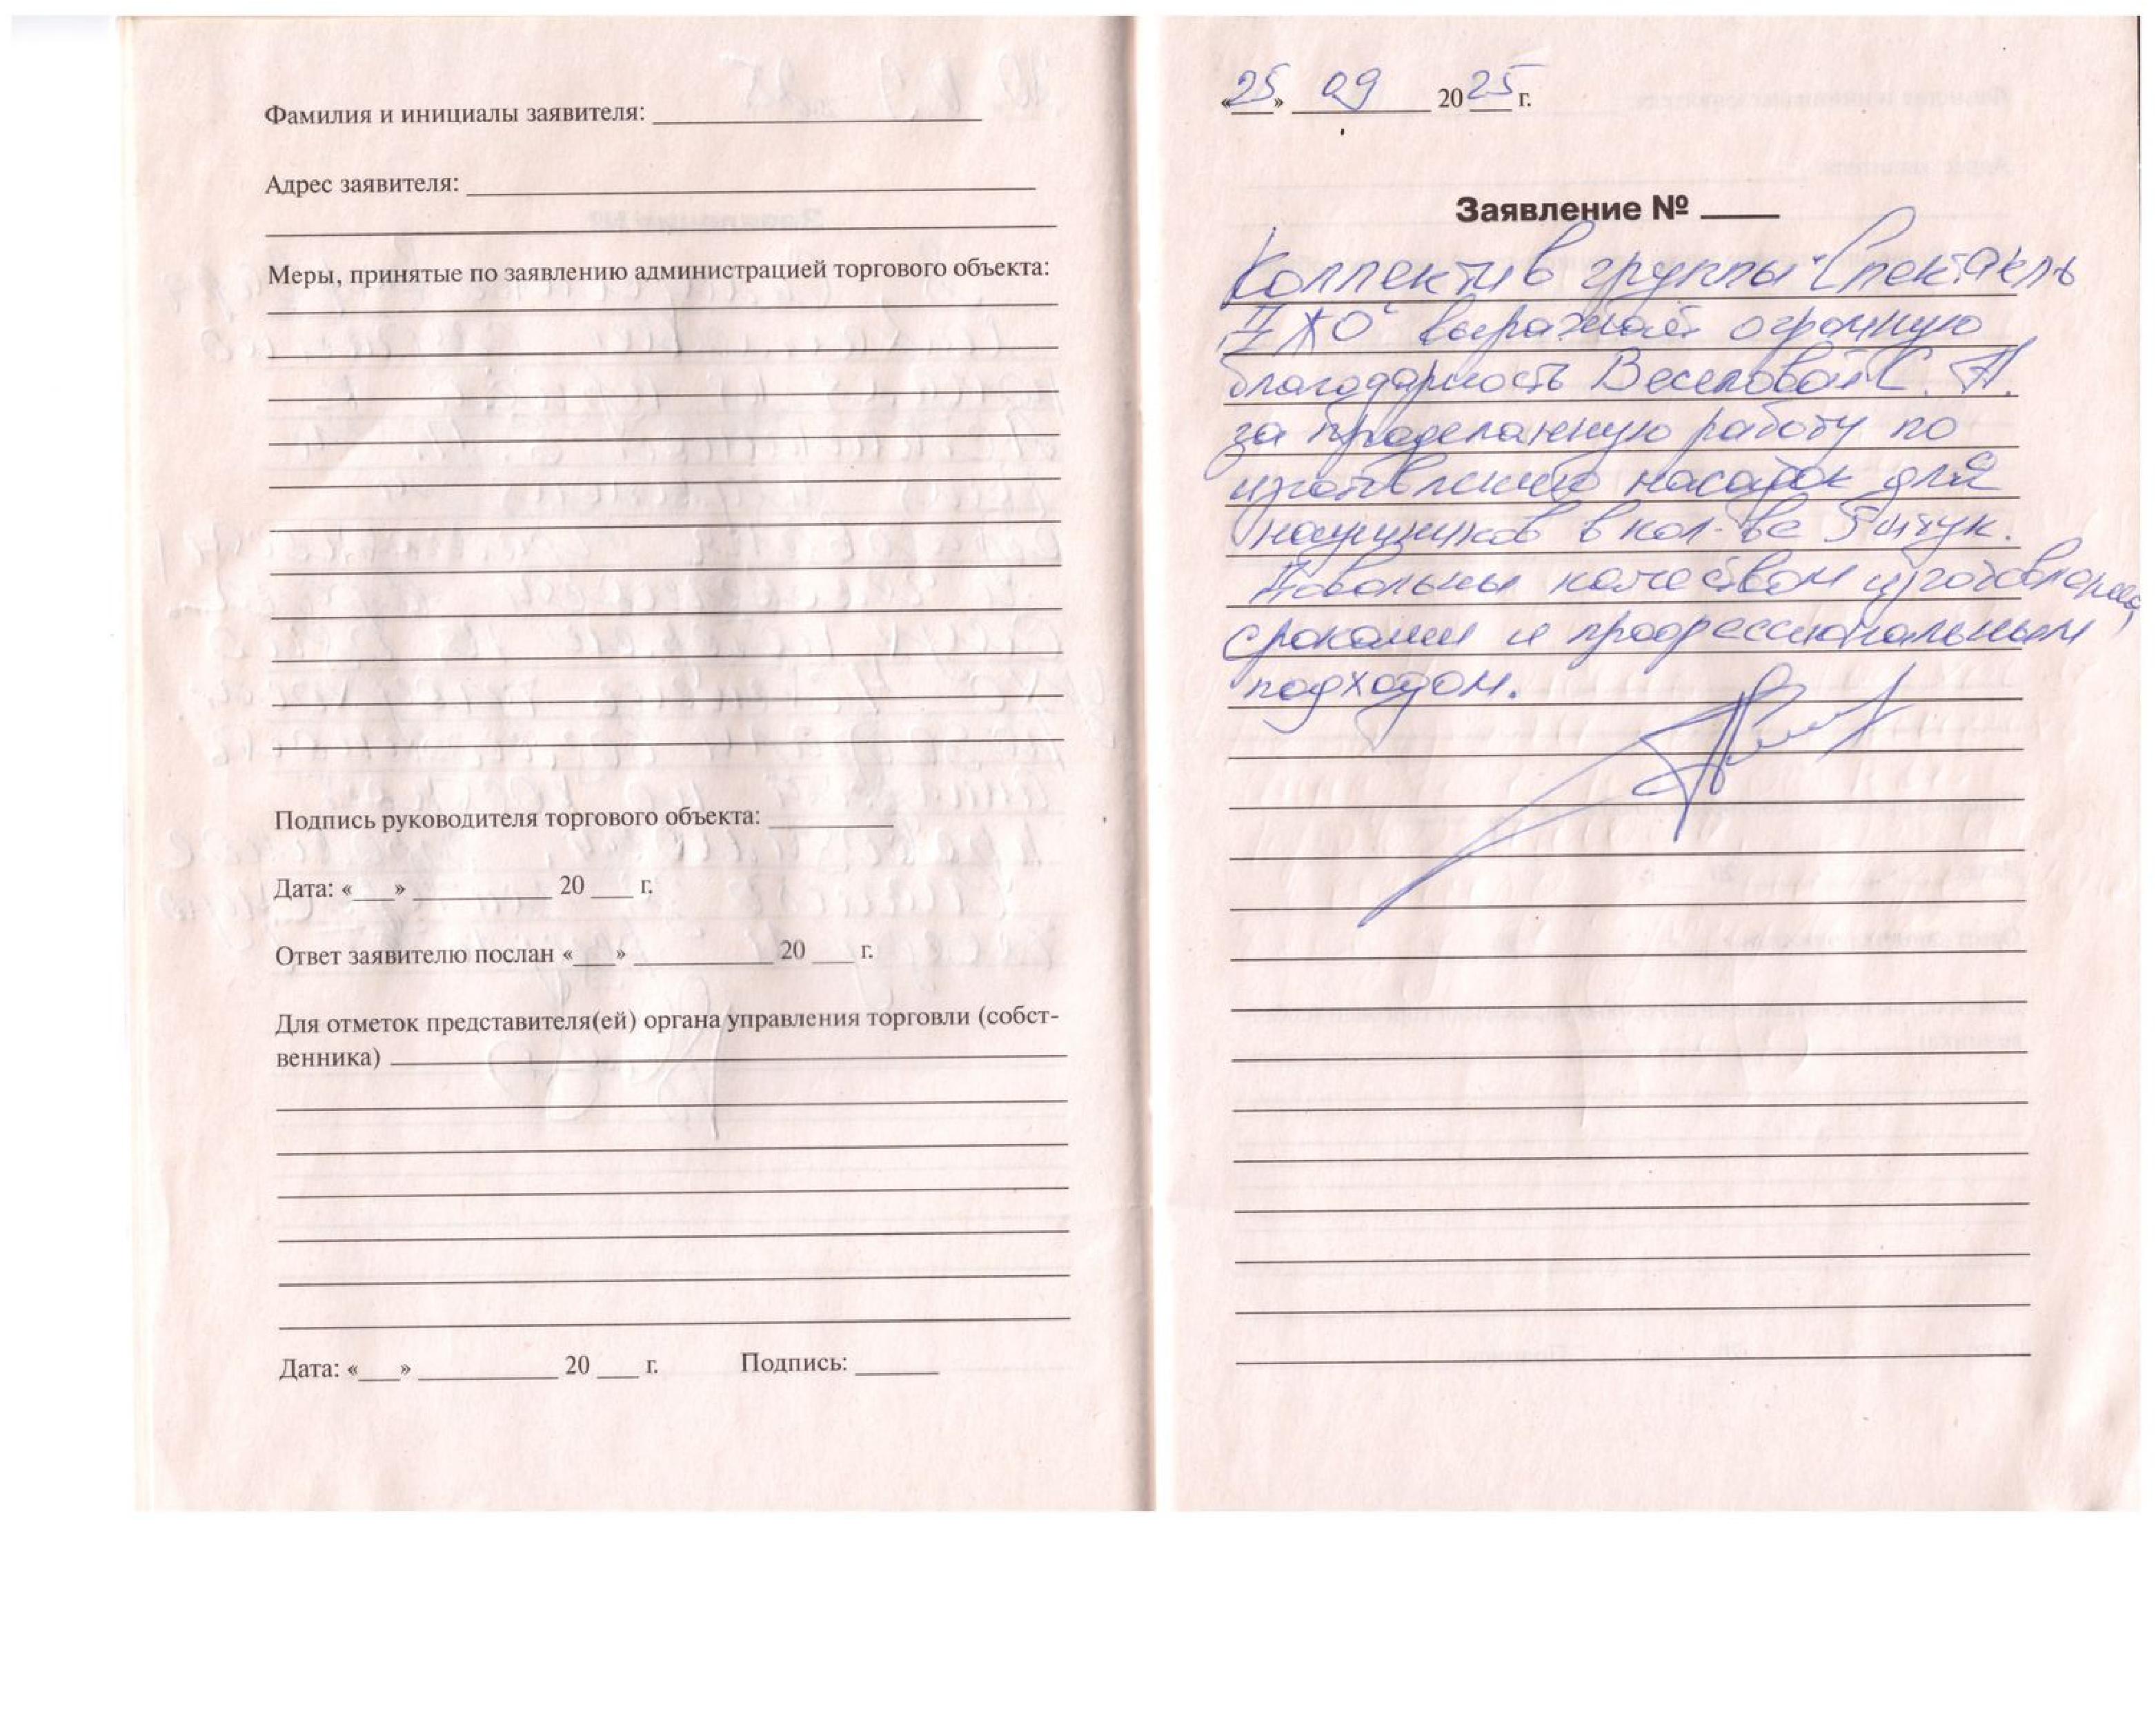 Фамилия и инициалы заявителя:
Адрес заявителя:
Меры, принятые по заявлению администрацией торгового объекта:
Подпись руководителя торгового объекта:
Дата: «___» __________ 20 ___ г.
Ответ заявителю послан «___» __________ 20 ___ г.
Для отметок представителя(ей) органа управления торговли (собст-
венника)
Дата: «___» __________ 20 ___ г. Подпись: ______
«25» 09 2025 г.
Заявление № ____
Коллектив группы "Спектакль
II ЖО" выражает огромную
благодарность Веселовой С. А.
за проделанную работу по
изготовлению насадок для
наушников в кол-ве 5 штук.
Довольны качеством
сроками и профессиональным
подходом.